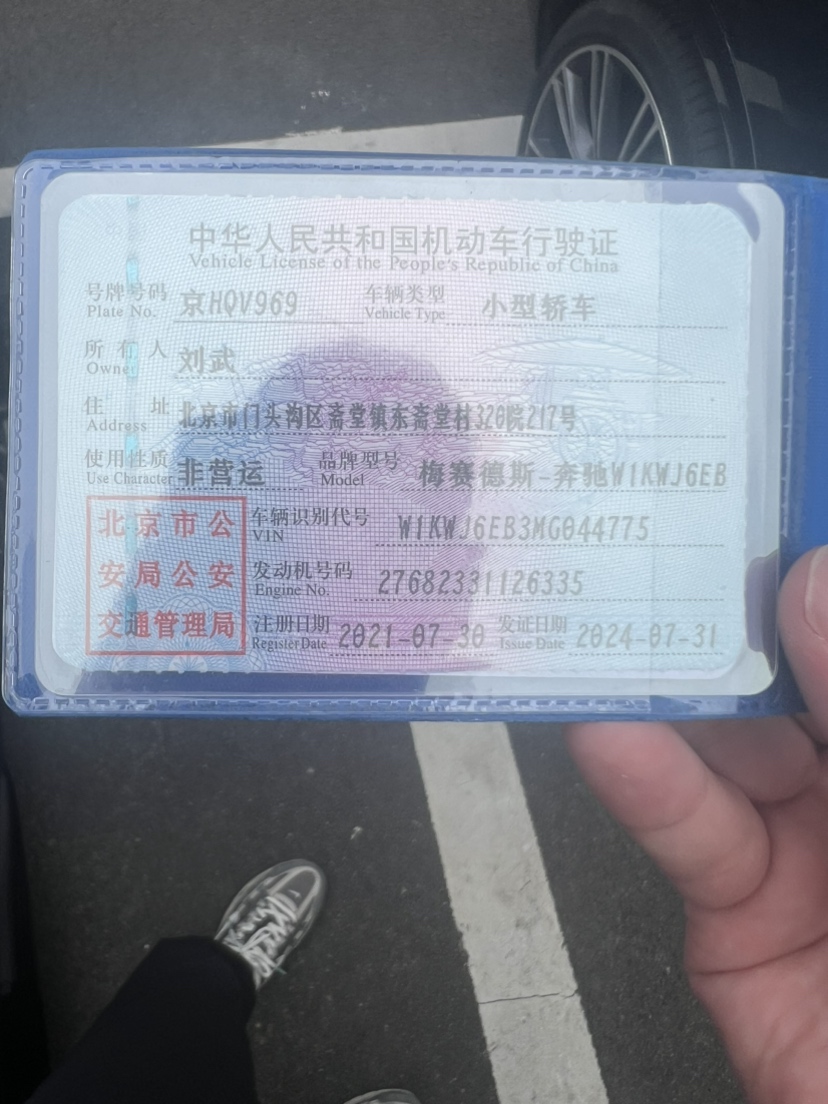 中华人民共和国机动车行驶证
Vehicle License of the People's Republic of China
号牌号码 京HQV969 车辆类型 小型轿车
Plate No. Vehicle Type
所有人 刘武
Owner
住址 北京市门头沟区斋堂镇东斋堂村320院217号
Address
使用性质 非营运 品牌型号 梅赛德斯-奔驰W1KWJ6EB
Use Character Model
北京市公 车辆识别代号 W1KWJ6EB3MG044775
VIN
安局公安 发动机号码 27682331126335
Engine No.
交通管理局 注册日期 2021-07-30 发证日期 2024-07-31
Register Date Issue Date